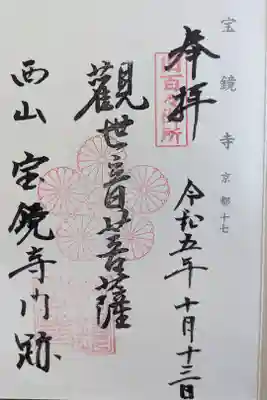 宝鏡寺 京都十七
奉拝
令和五年十月十三日
觀世音菩薩
西山 宝鏡寺門跡